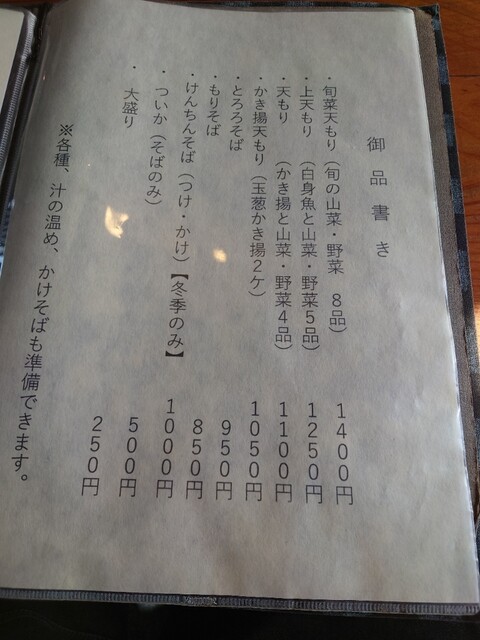 御品書き
・旬菜天もり（旬の山菜・野菜 8品） 1400円
・上天もり（白身魚と山菜・野菜5品） 1250円
・天もり（かき揚と山菜・野菜4品） 1100円
・かき揚天もり（玉葱かき揚2ケ） 1050円
・とろろそば 950円
・もりそば 850円
・けんちんそば（つけ・かけ）【冬季のみ】 1000円
・ついか（そばのみ） 500円
・大盛り 250円
※各種、汁の温め、かけそばも準備できます。